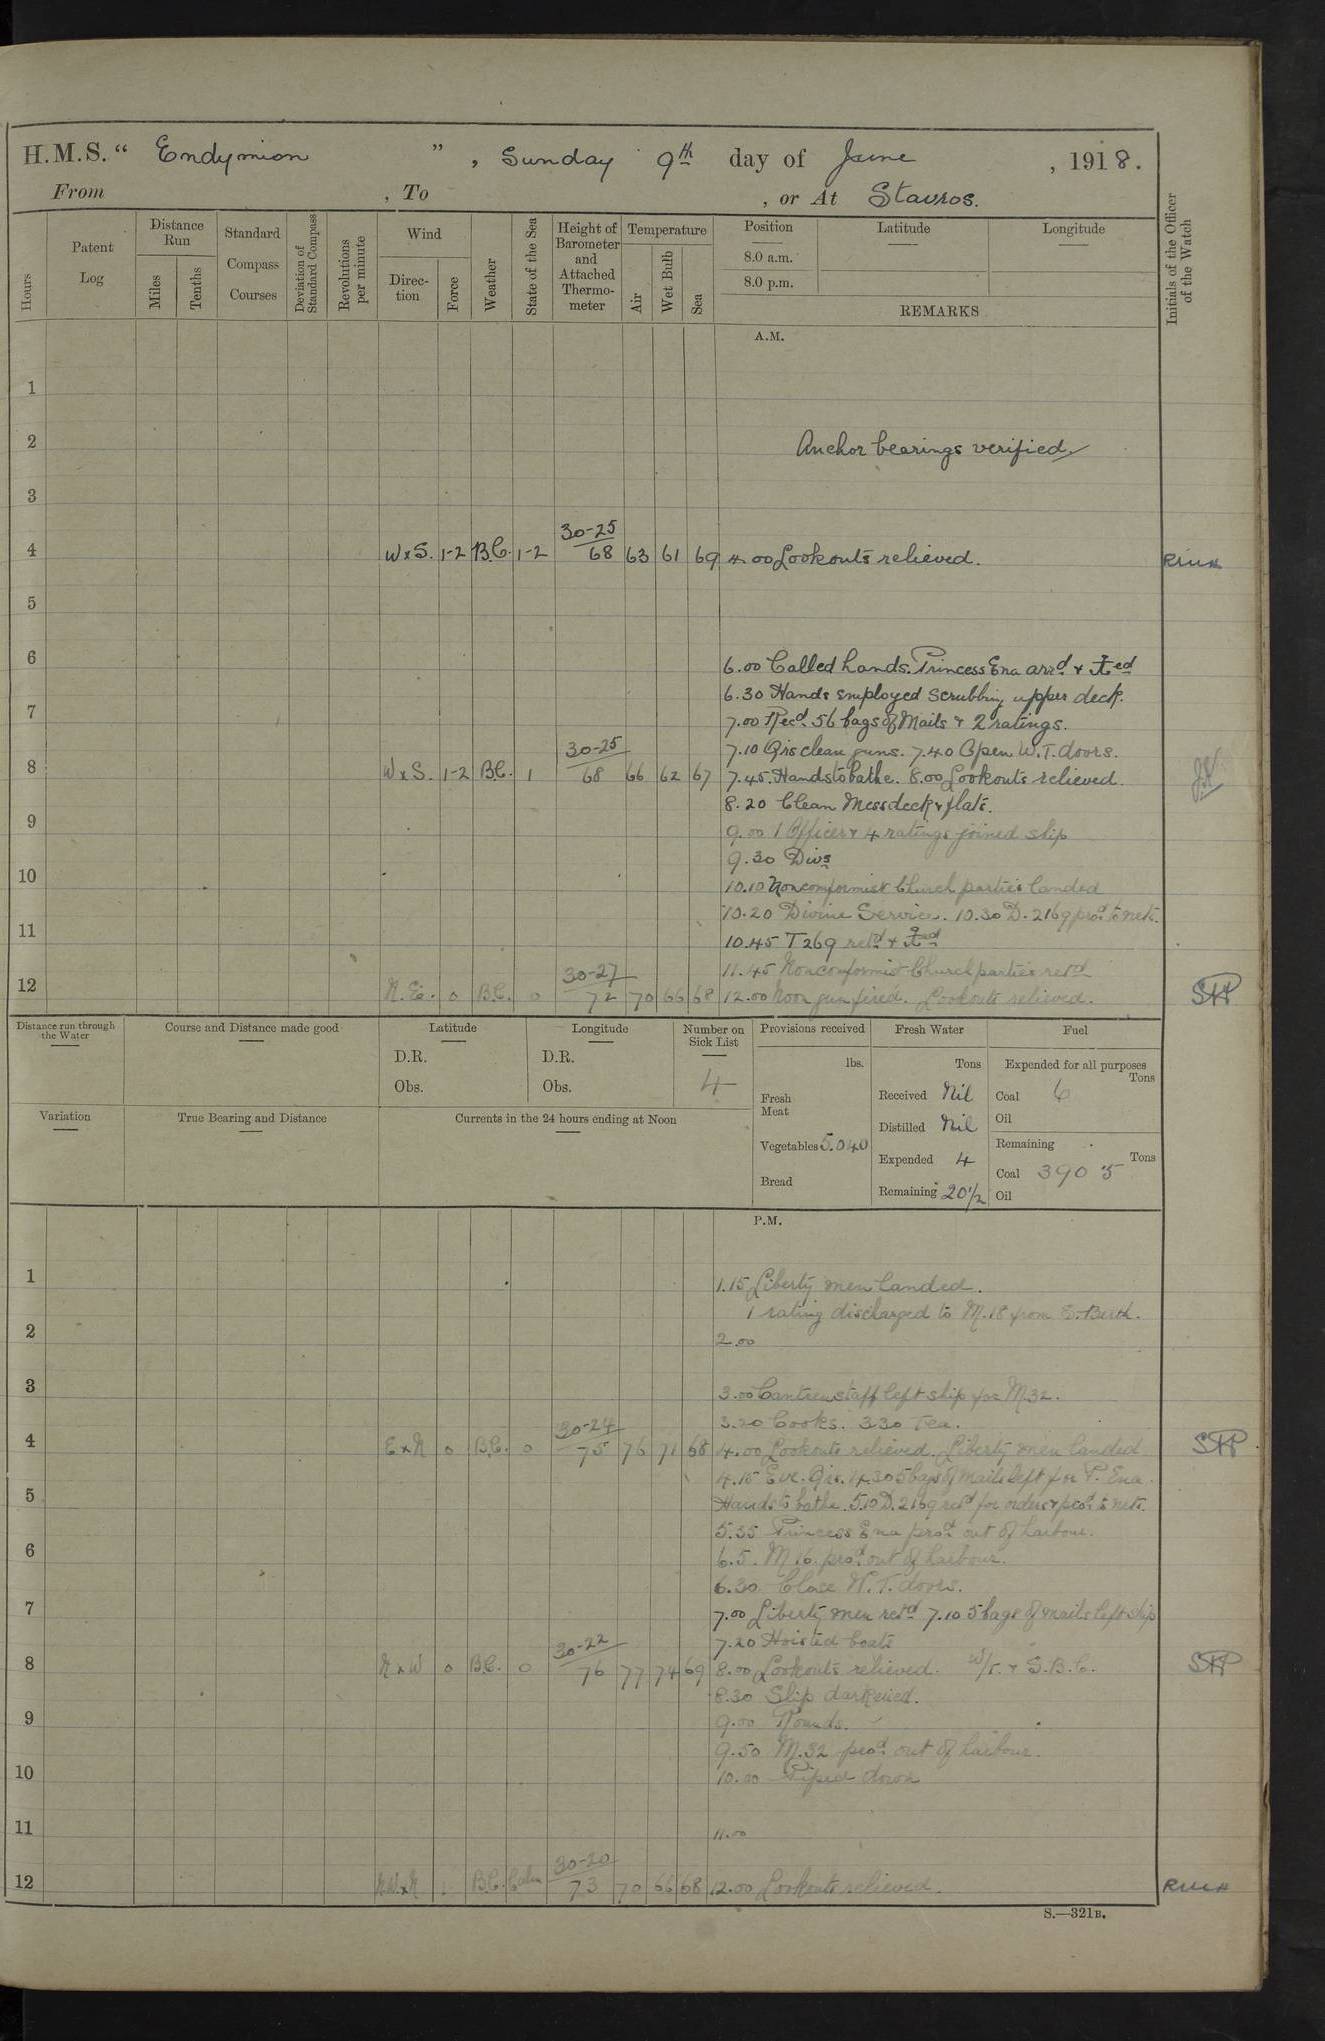 H.M.S. “ Endymion ” , Sunday 9th day of June , 1918.
From , To , or At Stavros.
Hours
Patent Log
Distance Run
Miles
Tenths
Standard Compass Courses
Deviation of Standard Compass
Revolutions per minute
Wind
Direction
Force
Weather
State of the Sea
Height of Barometer and Attached Thermometer
Temperature
Air
Wet Bulb
Sea
Position
8.0 a.m.
8.0 p.m.
Latitude
Longitude
REMARKS
Initials of the Officer of the Watch
A.M.
1
2 Anchor bearings verified
3
30-25
4 W x S. 1-2 B.C. 1-2 68 63 61 69 4.00 Lookouts relieved.
5
6 6.00 Called hands. Princess Ena arrd & ⚓ed
6.30 Hands employed scrubbing upper deck.
7 7.00 Recd. 56 bags of Mails & 2 ratings.
30-25 7.10 Qrs clean guns. 7.40 Open W.T. doors.
8 W x S. 1-2 B.C. 1 68 66 62 67 7.45. Hands to bathe. 8.00 Lookouts relieved.
8.20 Clean Messdeck & flats.
9 9.00 1 Officer & 4 ratings joined ship
9.30 Divs
10 10.10 Nonconformist Church parties landed
10.20 Divine Service. 10.30 D. 2169 prod. to nets.
11 10.45 T 269 retd & ⚓ed
30-27 11.45 Nonconformist Church parties retd
12 N.E. 0 B.C. 0 72 70 66 68 12.00 Noon gun fired. Lookouts relieved.
Distance run through the Water
Course and Distance made good
Latitude
D.R.
Obs.
Longitude
D.R.
Obs.
Number on Sick List
4
Provisions received
lbs.
Fresh Meat
Vegetables 5.040
Bread
Fresh Water
Tons
Received Nil
Distilled Nil
Expended 4
Remaining 201/2
Fuel
Expended for all purposes
Tons
Coal 6
Oil
Remaining
Tons
Coal 390 5
Oil
Variation
True Bearing and Distance
Currents in the 24 hours ending at Noon
P.M.
1 1.15 Liberty men landed.
1 rating discharged to M.18 from S. Berth.
2 2.00
3 3.00 Canteen staff left ship for M32.
30-24 3.20 Cooks. 3.30 Tea.
4 E x N 0 B.C. 0 75 76 71 68 4.00 Lookouts relieved. Liberty men landed
4.15 Eve. Qrs. 4.30 5 bags of mails left for P. Ena.
5 Hands to bathe. 5.10 D. 2169 retd for orders & prod. to nets.
5.35 Princess Ena prod. out of harbour.
6 6.5. M 16 prod. out of harbour.
6.30 Close W.T. doors.
7 7.00 Liberty men retd 7.10 5 bags of mails left ship
30-22 7.20 Hoisted boats
8 N x W 0 B.C. 0 76 77 74 69 8.00 Lookouts relieved. W/T. & S.B.C.
8.30 Ship darkened.
9 9.00 Rounds.
9.50 M.32 prod. out of harbour.
10 10.00 Piped down
11 11.00
30-20
12 NW x N 1 B.C. Calm 73 70 66 68 12.00 Lookouts relieved.
S.—321B.